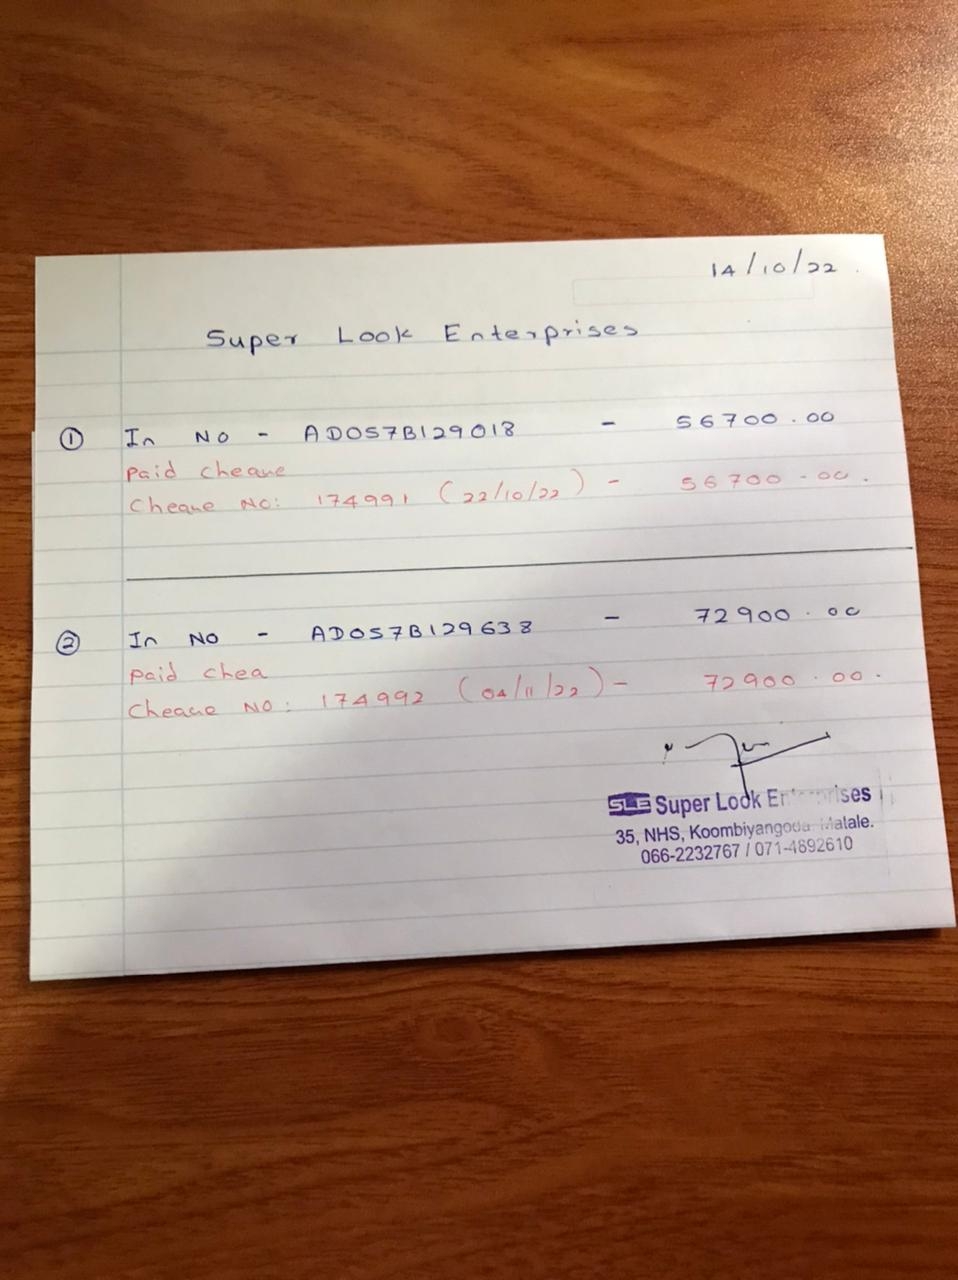 14/10/22
Super Look Enterprises
① In No - AD057B129018 - 56700.00
Paid Cheaue
Cheaue No: 174991 (22/10/22) - 56700-00.
② In No - AD057B129638 - 72900.00
Paid Chea
Cheaue No: 174992 (04/11/22) - 72900.00.
SLE Super Look Enterprises
35, NHS, Koombiyangoda Matale.
066-2232767 / 071-4892610